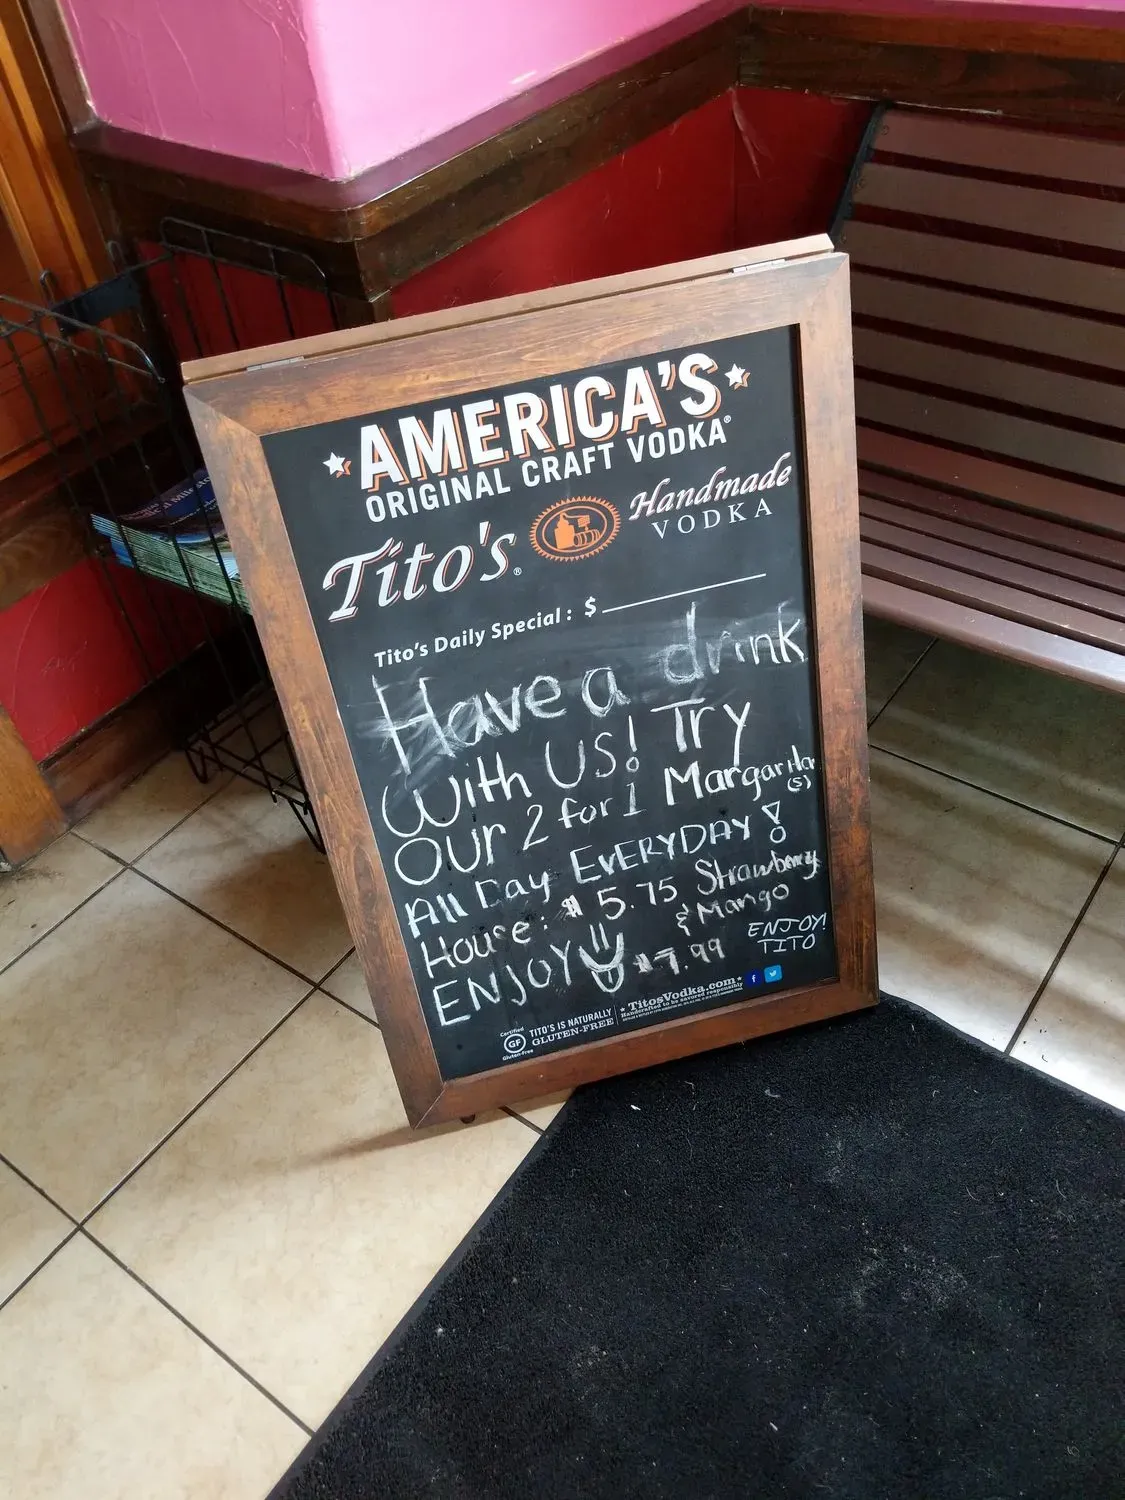 AMERICA'S
ORIGINAL CRAFT VODKA®
Tito's® Handmade
VODKA
Tito's Daily Special: $
Have a drink
With US! Try
OUr 2 for 1 Margaritas
(s)
All Day EVERYDAY!
House: $5.75 Strawberry
& Mango
ENJOY $7.99
ENJOY!
TITO
Certified
GF
Gluten-Free
TITO'S IS NATURALLY
GLUTEN-FREE
TitosVodka.com
Handcrafted to be savored responsibly